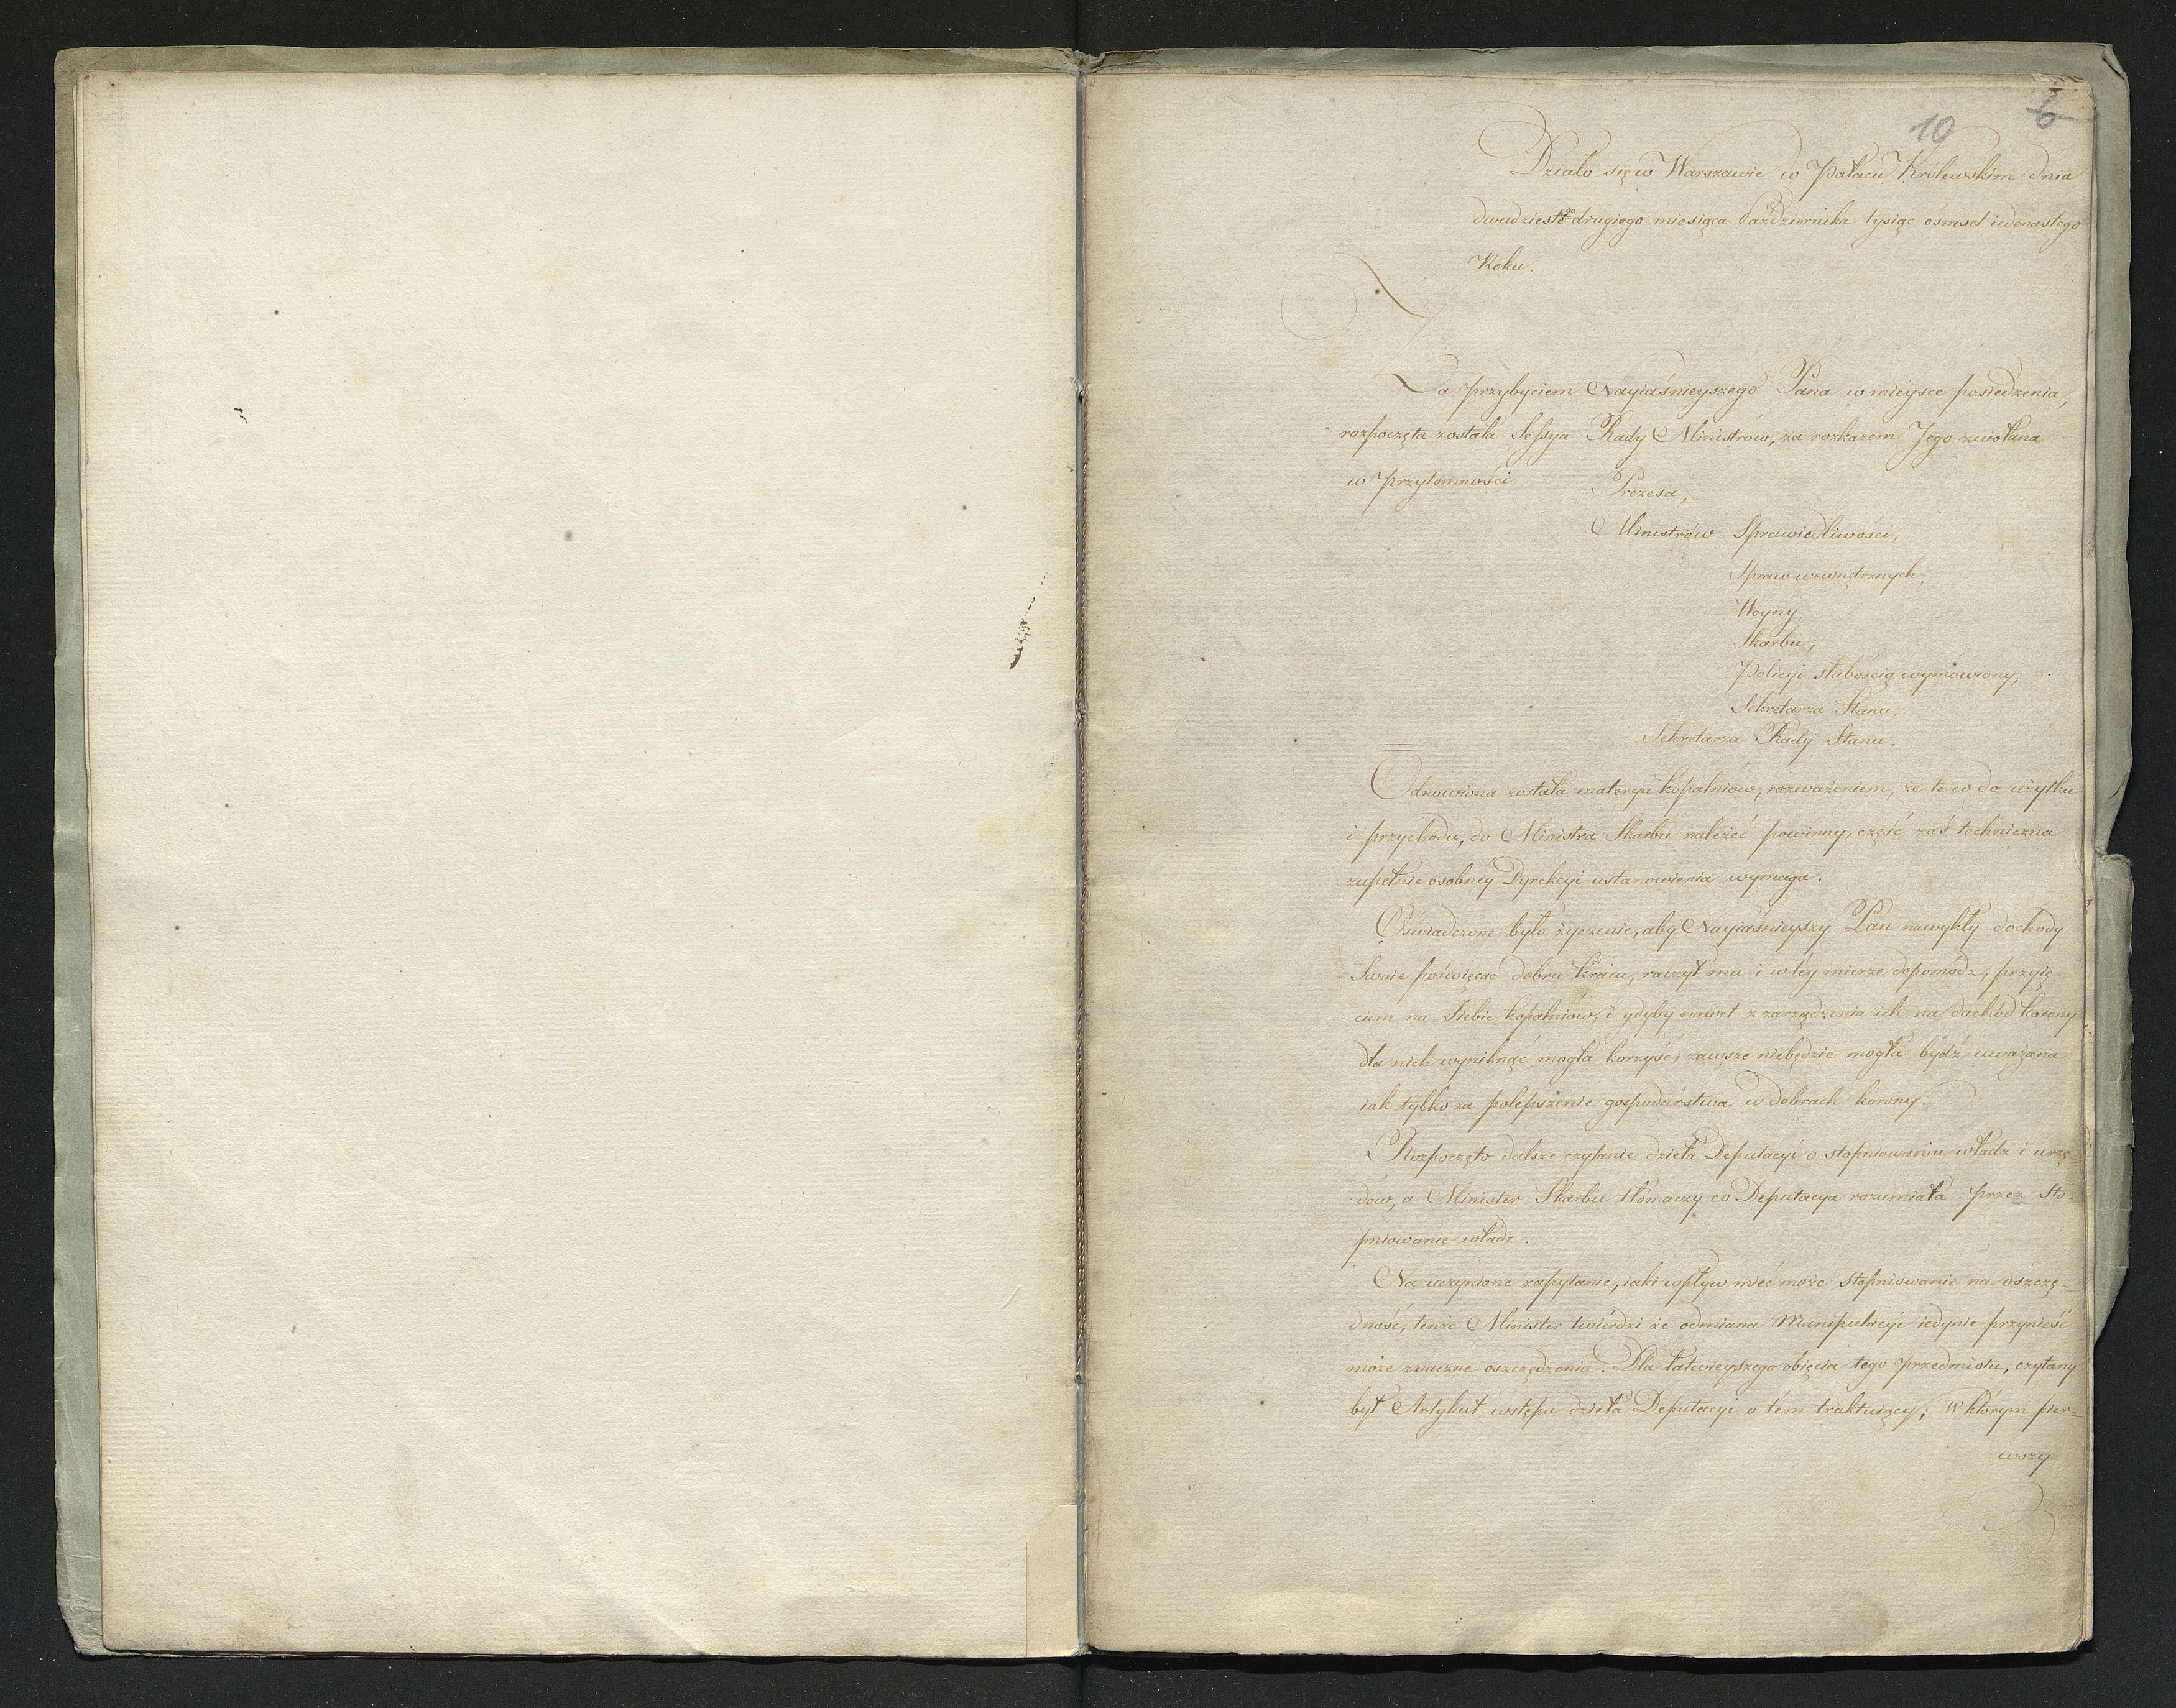 10 6
Działo się w Warszawie w Pałacu Królewskim dnia
dwudziestego drugiego miesiąca Października tysiąc ośmset iedenastego
Roku.
Za przybyciem Nayiaśnieyszego Pana w mieysce posiedzenia,
rozpoczęta została Sessya Rady Ministrów, za rozkazem Jego zwołana
w przytomności Prezesa,
Ministrów Sprawiedliwości,
Spraw wewnętrznych,
Woyny,
Skarbu,
Policyi słabością wymówiony,
Sekretarza Stanu,
Sekretarza Rady Stanu.
Odnowiona została materya kopalniów, rozważeniem, że te co do użytku
i przychodu, do Ministra Skarbu należeć powinny, część zaś techniczna
zupełnie osobney Dyrekcyi ustanowienia wymaga.
Oświadczone było życzenie, aby Nayiaśnieyszy Pan nawykły dochody
Swoie poświęcać dobru kraiu, raczył mu i w téy mierze dopomódz, przyię-
ciem na Siebie kopalniów, i gdyby nawet z zarządzenia ich na dochód korony
dla nich wyniknąć mogła korzyść, zawsze niebędzie mogła bydź uważana
iak tylko za polepszenie gospodarstwa w dobrach korony.
Rozpoczęto dalsze czytanie dzieła Deputacyi o stopniowaniu władz i urzę-
dów, a Minister Skarbu tłomaczy co Deputacya rozumiała przez Sto-
pniowanie władz.
Na uczynione zapytanie, iaki wpływ mieć może Stopniowanie na oszczę-
dność, tenże Minister twierdzi że odmiana Manipulacyi iedynie przynieść
może znaczne oszczędzenia. Dla łatwieyszego obięcia tego przedmiotu, czytany
był Artykuł wstępu dzieła Deputacyi o tém traktuiący; w którym pier-
wszy